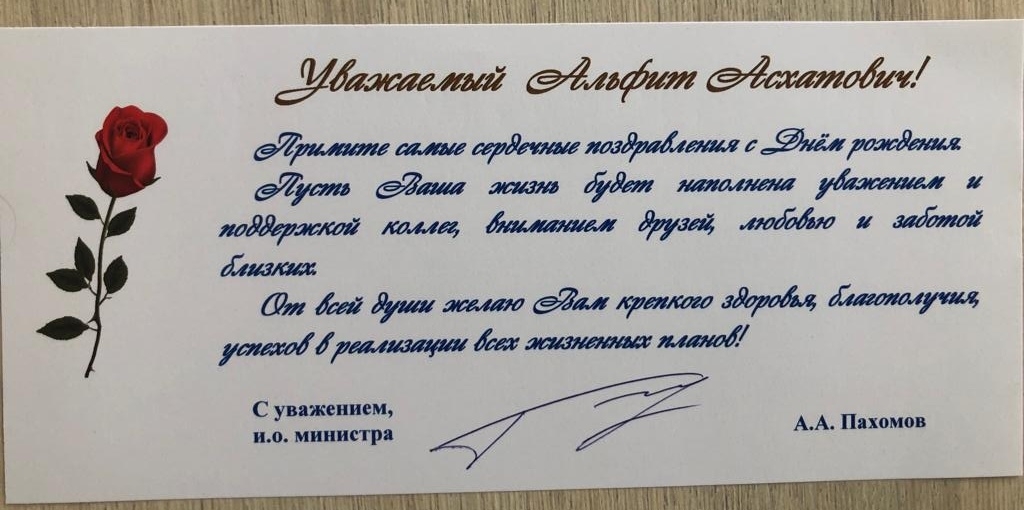 Уважаемый Альфит Асхатович!
Примите самые сердечные поздравления с Днём рождения.
Пусть Ваша жизнь будет наполнена уважением и
поддержкой коллег, вниманием друзей, любовью и заботой
близких.
От всей души желаю Вам крепкого здоровья, благополучия,
успехов в реализации всех жизненных планов!
С уважением,
и.о. министра
А.А. Пахомов